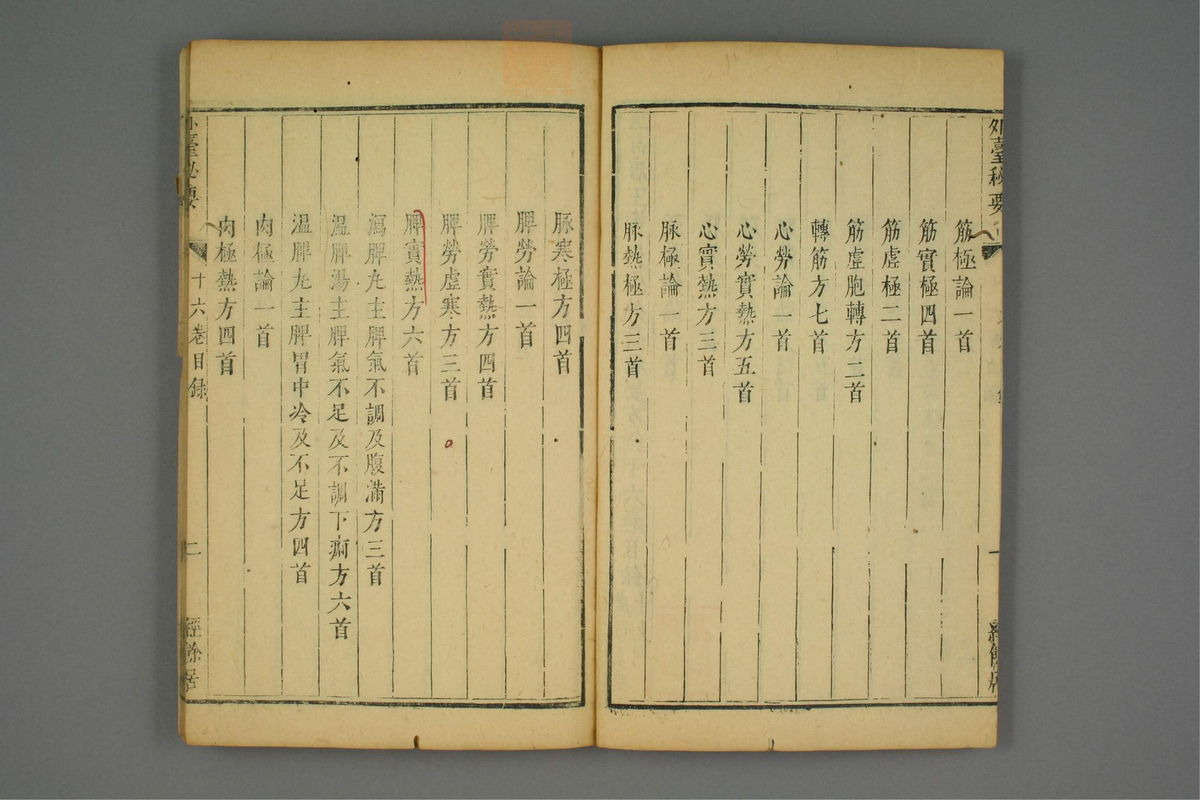 外臺秘要
一
經餘居
筋極論一首
筋實極四首
筋虛極二首
筋虛胞轉方二首
轉筋方七首
心勞論一首
心勞實熱方五首
心實熱方三首
脉極論一首
脉熱極方三首
脉寒極方四首
脾勞論一首
脾勞實熱方四首
脾勞虛寒方三首
脾實熱方六首
瀉脾丸主脾氣不調及腹滿方三首
溫脾湯主脾氣不足及不調下痢方六首
溫脾丸主脾胃中冷及不足方四首
肉極論一首
肉極熱方四首
外臺秘要
十六卷目錄
二
經餘居